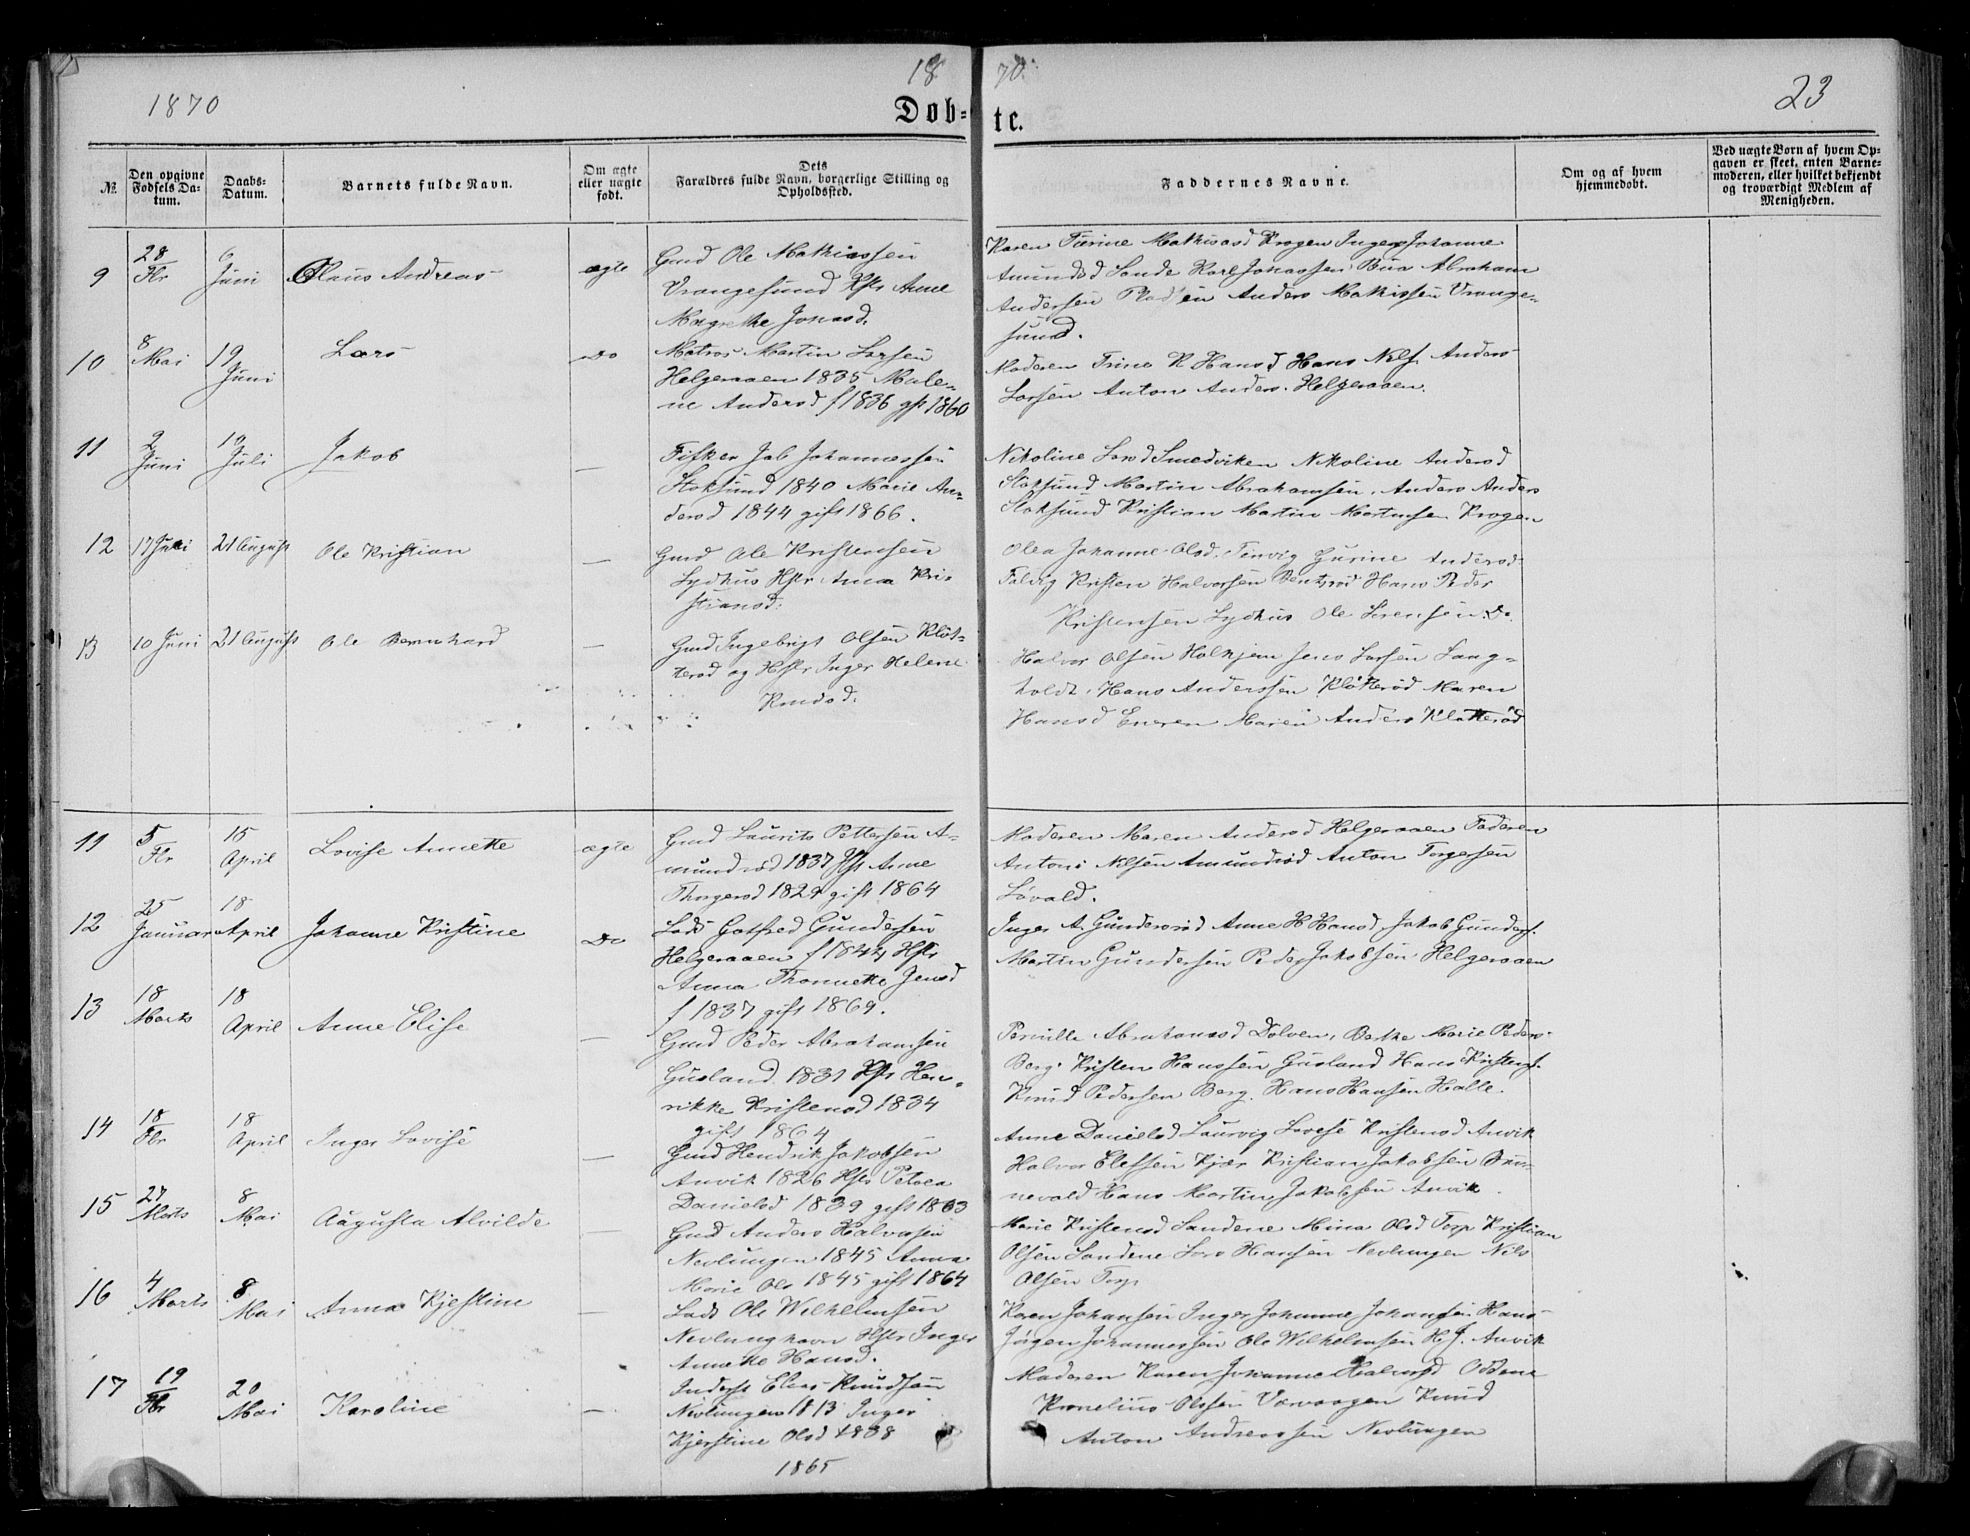 1870 18 70. 23
Døb- te.
№ Den opgivne Fødsels Da-tum. Daabs-Datum. Barnets fulde Navn. Om ægte eller uægte født. Dets Farældres fulde Navn, borgerlige Stilling og Opholdssted. Faddernes Navne. Om og af hvem hjemmedøbt. Ved uægte Børn af hvem Op-gaven er skeet, enten Barne-moderen, eller hvilket bekjendt og troværdigt Medlem af Menigheden.
9 28 Fbr 6 Juni Claus Andreas ægte Gmd Ole Mathiassen
Vrangesund Hstr Anne
Magrethe Jonasd.
Karen Tirine Mathisasd Krogen Inger Johanne
Amundsd Sande Karl Jonassen Bua Abraham
Andersen Pladsen Anders Mathissen Vrange-
sund.
10 8 Mai 19 Juni Lars Do Matros Martin Larsen
Helgeraaen 1835 Male-
ne Andersd f 1836 gft 1860
Moderen Trine K Hansd Hans Nilss Anders
Larsen Anton Anders. Helgeraaen.
11 2 Juni 10 Juli Jakob — Fisker Jab Johannessen
Stoksund 1840 Marie An-
dersd 1844 gift 1866.
Nikoline Larsd Smedviken Nikoline Andersd
Stoksund Martin Abrahamsen. Anders Anders
Stoksund Kristian Martin Martinsen Krogen
12 17 Juni 21 August Ole Kristian — Gmd Ole Kristensen
Lydhus Hstr Anna Kri-
stiansd.
Olea Johanne Olsd. Tenvig Gurine Andersd
Kristen Halvorsen Bentsrød Hans Peder
Kristensen Lydhus Ole Sørensen Do.
13 10 Juni 21 August Ole Bernhard — Gmd Ingebrigt Olsen Kløt-
terød og Hstr Inger Helene
Knudsd.
Halvor Olsen Holkjem Jens Larsen Lang-
holdt. Hans Anderssen Kløtterød Maren
Hansd Eneren Maren Anders Kløtterød
11 5 Fbr 15 April Lovise Annette ægte Gmd Laurits Pettersen A-
mundrød 1837 Hst Anne
Thorgersd 1829 gift 1864
Moderen Maren Andersd Helgeraaen Faderen
Anton Nilsen Amundrød Anton Torgersen
Løvald.
12 25 Januar 18 April Johanne Kristine Do Lods Gotfred Gundersen
Helgeraaen f 1844 Hstr
Anna Thonette Jensd
f 1837 gift 1869.
Inger A. Gundersrød Anne H Hansd Jakob Gunders.
Martin Gundersen Peder Jakobsen Helgeraaen
13 18 Marts 18 April Anne Elise — Gmd Peder Abrahamsen
Gusland 1831 Hstr Hen-
rikke Kristensd 1834
gift 1864
Pernille Abrahamsd Dolven, Berthe Marie Peders
Berg. Kristen Hanssen Gusland Hans Kristens.
Knud Pedersen Berg. Hans Hansen Halle.
14 18 Fbr 18 April Inger Lovise — Gmd Hendrik Jakobsen
Anvik 1826 Hstr Petrea
Danielsd 1839 gift 1863
Anne Danielsd Laurvig Lovise Kristensd Anvik
Halvor Elefsen Kjær Kristian Jakobsen Brun-
nevald Hans Martin Jakobsen Anvik.
15 27 Marts 8 Mai Augusta Alvilde — Gmd Anders Halvorsen
Nevlungen 1845 Anna
Marie Ols 1845 gift 1864
Marie Kristensd Sandene Mina Olsd Torp Kristian
Olsen Sandene Lars Hansen Nevlungen Nils
Olsen Torp
16 4 Marts 8 Mai Anna Kjestine — Lods Ole Wilhelmsen
Nevlunghavn Hstr Inger
Annette Hansd.
Karen Johansen Inger Johanne Johansen Hans
Jørgen Johannessen Ole Wilhelmsen H J. Anvik
17 19 Fbr 20 Mai Karoline — Inderst Elias Knudssen
Nevlungen 1813 Inger
Kjerstine Olsd 1838
1865
Moderen Karen Johanne Halvorsd Oddane
Kornelius Olssen Værvaagen Knud
Anton Andreassen Nevlungen